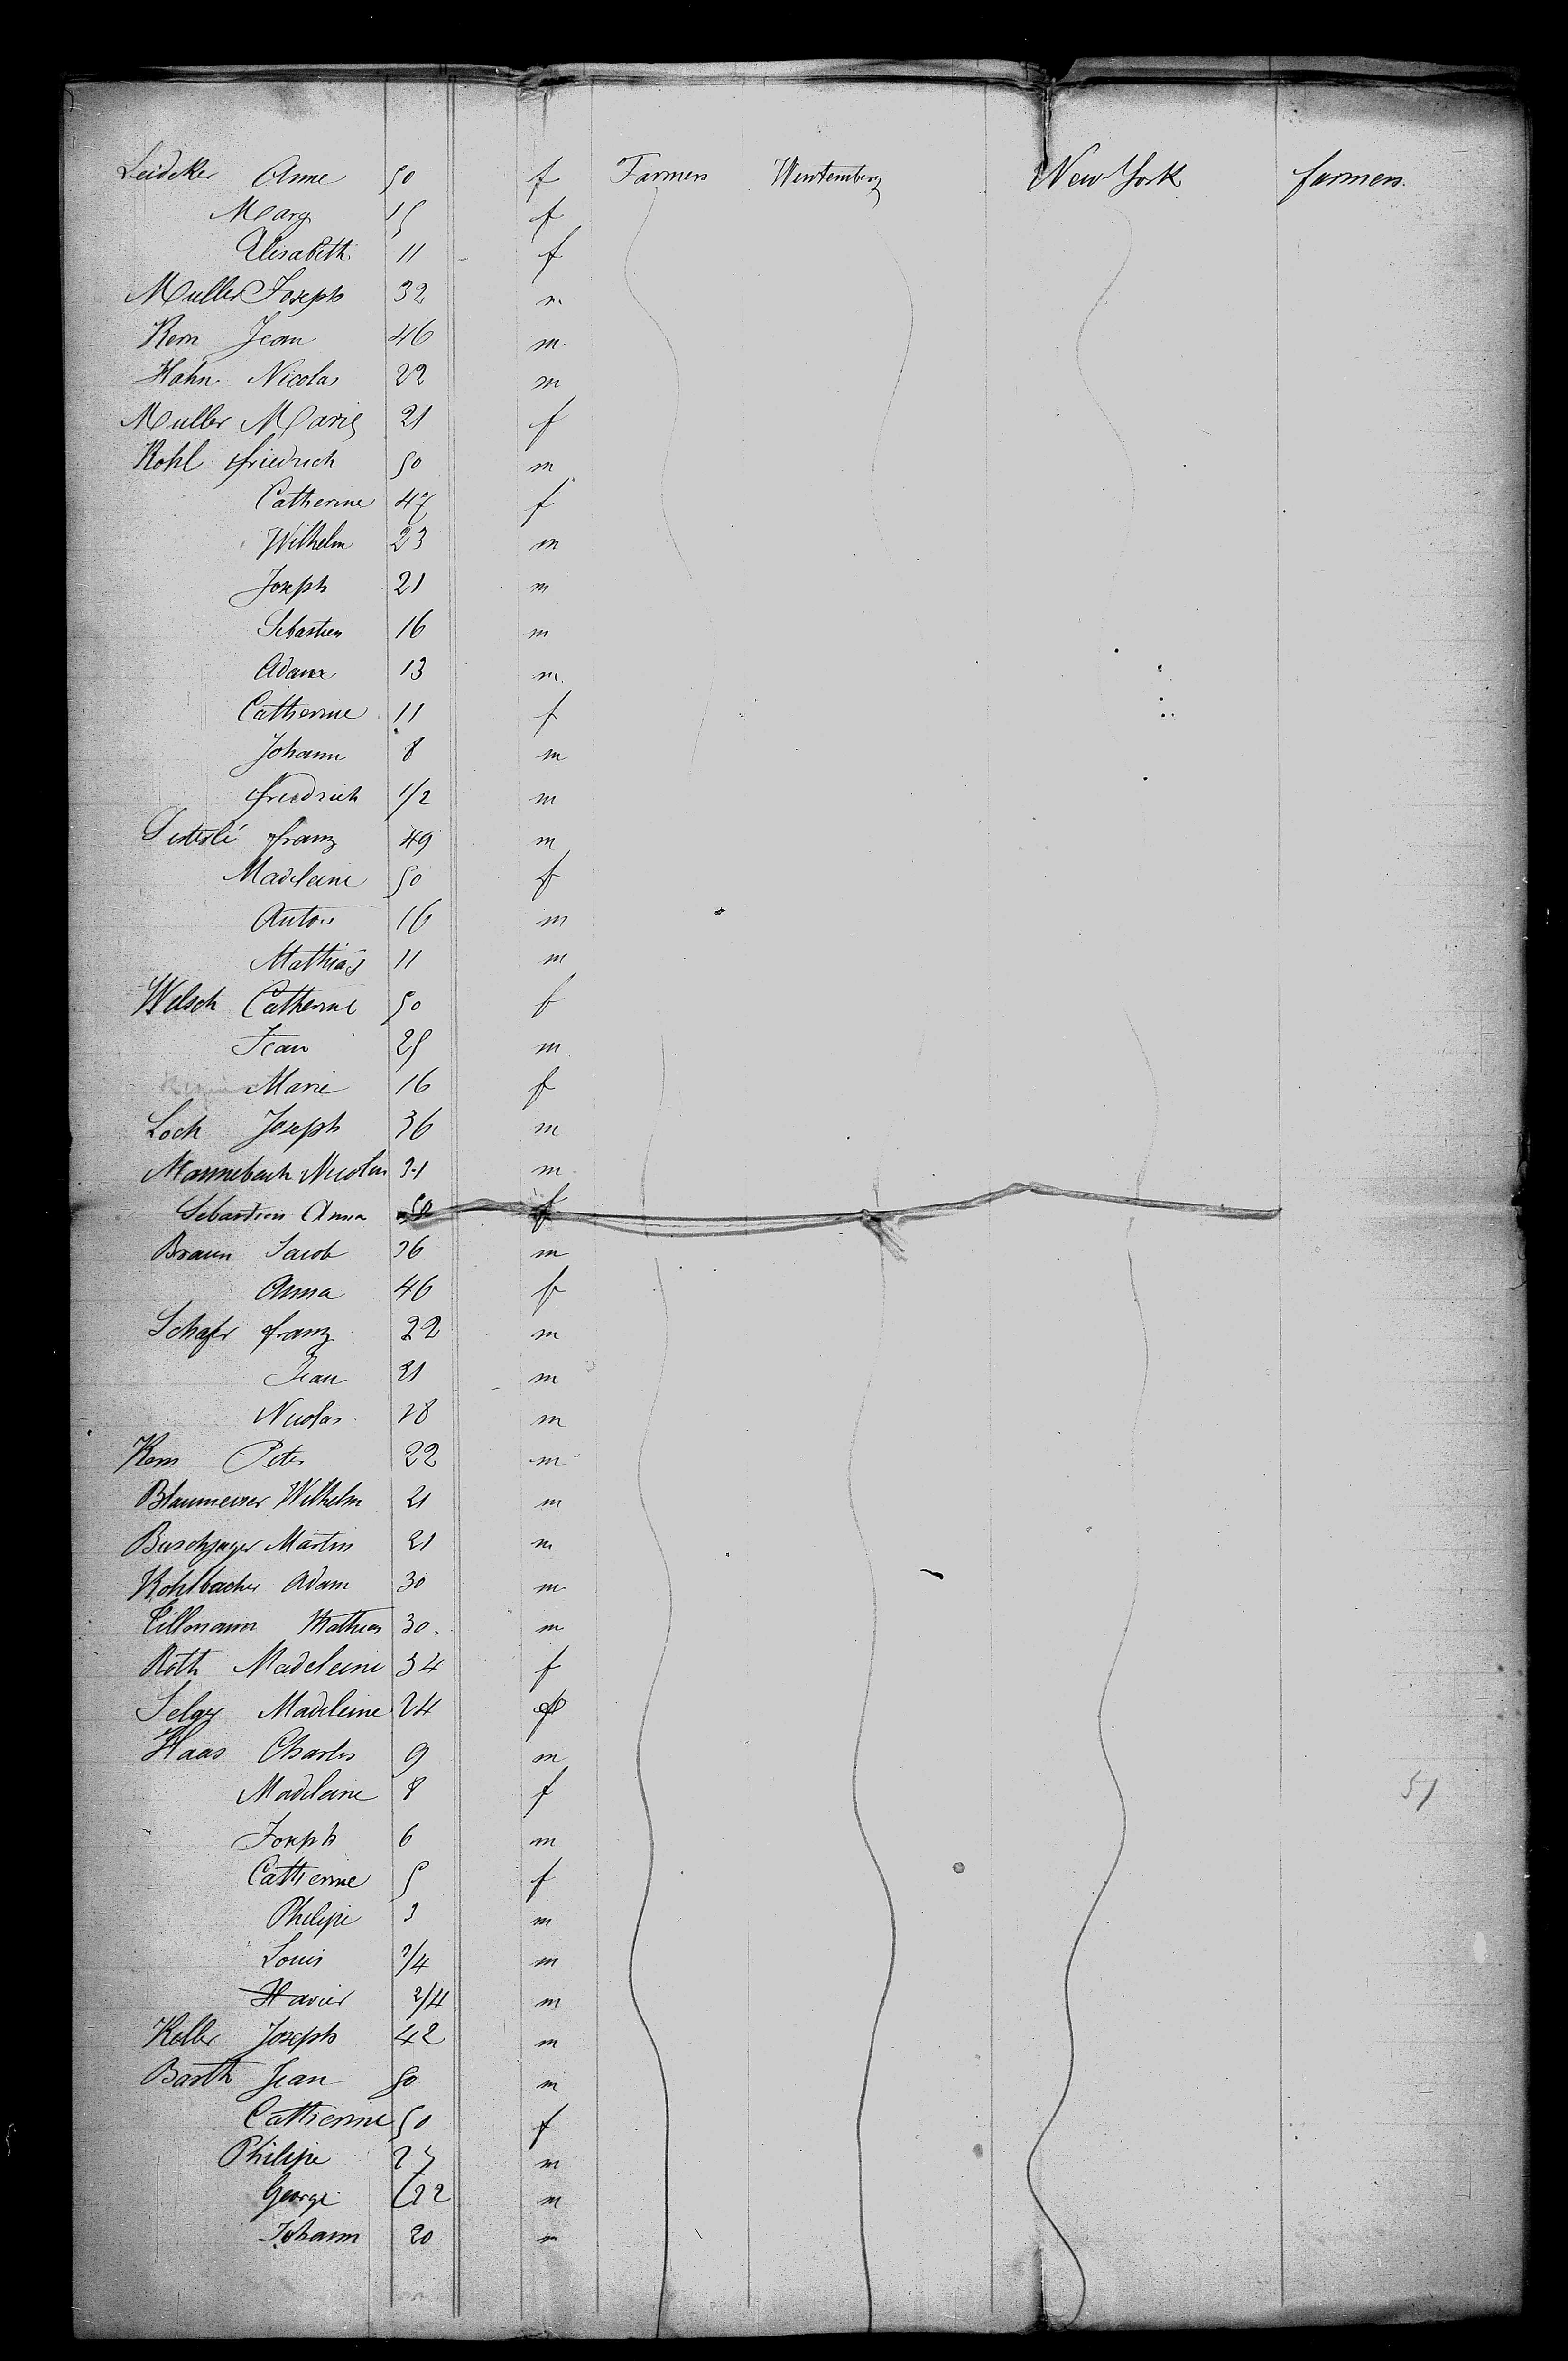 Leideker Anne 50 f Farmers Wurtemberg New York farmers.
Marg 15 f
Elisabeth 11 f
Muller Joseph 32 m
Kern Jean 46 m
Hahn Nicolas 22 m
Muller Marie 21 f
Kohl friedrich 50 m
Catherine 47 f
Wilhelm 23 m
Joseph 21 m
Sebastien 16 m
Adam 13 m
Catherine 11 f
Johann 8 m
friedrich 1/2 m
franz 49 m
Madeleine 50 f
Anton 16 m
Mathias 11 m
Welsch Catherine 50 f
Jean 25 m
Marie 16 f
Loch Joseph 36 m
Mannebach Nicolas 31 m
Sebastien Anna f
Braun Jacob 36 m
Anna 46 f
Schafer franz 22 m
Jean 21 m
Nicolas 18 m
Kern Peter 22 m
Blaumeiser Wilhelm 21 m
Buschjager Martin 21 m
Kohlbacher Adam 30 m
Tillmann Mathias 30. m
Roth Madeleine 34 f
Madeleine 24 f
Haas Charles 9 m
Madeleine 8 f
Joseph 6 m
Catherine 5 f
Philipe 3 m
Louis 3/4 m
Xavier 3/4 m
Keller Joseph 42 m
Barth Jean 50 m
Catherine 50 f
Philipe 25 m
George 22 m
Johann 20 m
57